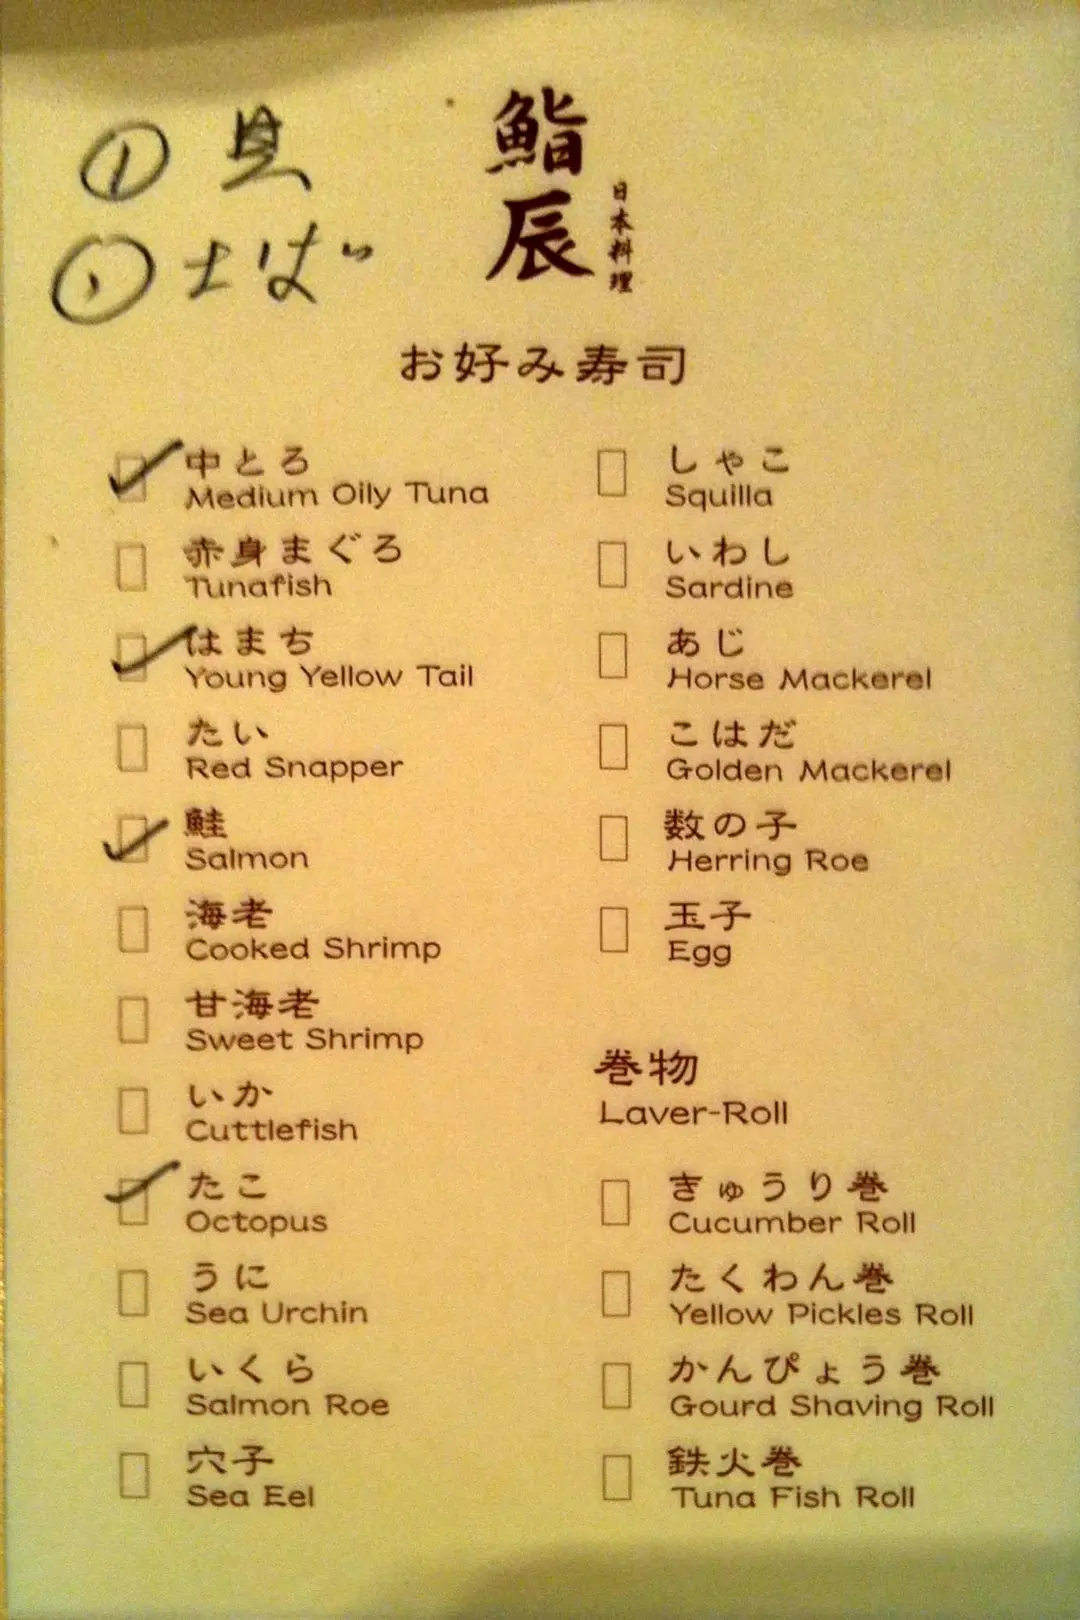 鮨辰
日本料理
お好み寿司
中とろ
Medium Oily Tuna
赤身まぐろ
Tunafish
はまち
Young Yellow Tail
たい
Red Snapper
鮭
Salmon
海老
Cooked Shrimp
甘海老
Sweet Shrimp
いか
Cuttlefish
たこ
Octopus
うに
Sea Urchin
いくら
Salmon Roe
穴子
Sea Eel
しゃこ
Squilla
いわし
Sardine
あじ
Horse Mackerel
こはだ
Golden Mackerel
数の子
Herring Roe
玉子
Egg
巻物
Laver-Roll
きゅうり巻
Cucumber Roll
たくわん巻
Yellow Pickles Roll
かんぴょう巻
Gourd Shaving Roll
鉄火巻
Tuna Fish Roll